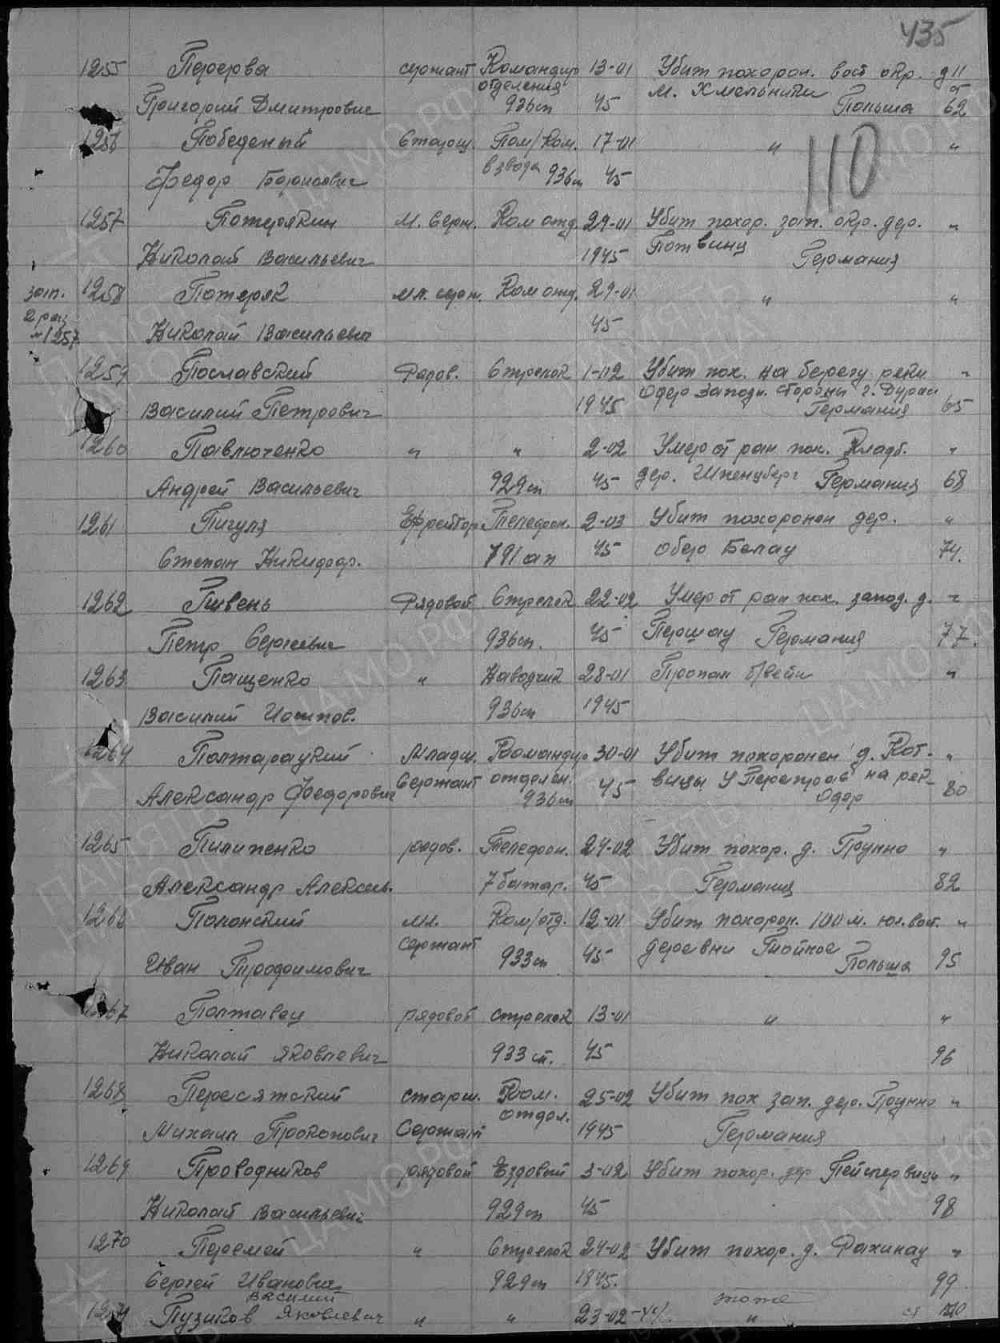 435
1255 Перерва сержант Командир 13-01 Убит похорон. вост окр. д 11
отделения м. Хмельники от
Григорий Дмитрович 936сп 45 Польша 62
1256 Победеный Старш. Пом/Ком. 17-01 " "
110
Федор Борисович взвода 936сп 45
1257 Потерякин М. Серж. Ком отд. 29-01 Убит похор. зап. окр. дер. "
Николай Васильевич 1945 Потвинц Германия
зап. 1258 Потеряк мл. серж. Ком отд. 29-01 " "
2 раз
№1257 Николай Васильевич 45
1259 Пославский Рядов. Стрелок 1-02 Убит пох. на берегу реки "
Одер западн. стороны г.
Василий Петрович 1945 Германия 65
1260 Павлюченко " " 2-02 Умер от ран пох. Кладб. "
Андрей Васильевич 929сп 45 дер. Германия 68
1261 Пигуля Ефрейтор Телефон. 2-03 Убит похоронен дер. "
Степан Никифор. 791 ап 45 Обер Белау 74.
1262 Пивень Рядовой Стрелок 22-02 Умер от ран пох. запад. д. "
Петр Сергеевич 936сп. 45 Першау Германия 77.
1263 Пащенко " Наводчик 28-01 Пропал б/вести "
Василий Иосипов. 936сп 1945
1264 Полтарацкий Младш. Командир 30-01 Убит похоронен д. Кот- "
Сержант отделен. вицы у Переправ на рек-
Александр Федорович 936сп 45 Одер 80
1265 Пилипенко рядов. Телефон. 24-02 Убит похор. д. Грунно "
Александр Алексан. 7 батар. 45 Германия 82
1266 Полонский мл. Ком/отд. 12-01 Убит похорон. 100 м. юг.вост. "
сержант деревни Гнойное
Иван Трофимович 933сп 45 Польша 95
1267 Полтавец рядовой стрелок 13-01 " "
Николай Яковлевич 933 сп. 45 96
1268 Пересятский старш. Ком. 25-02 Убит пох зап. дер. Грунно "
отдел.
Михаил Прокопович Сержант 1945 Германия
1269 Проводников рядовой Ездовый 3-02 Убит похор. дер Пейскервиць "
Николай Васильевич 929сп 45 98
1270 Перемей " Стрелок 24-02 Убит похор. д. Рахинау "
Сергей Иванович 929сп 1945. 99
Василий тоже
1271 Пузиков Яковлевич " " 23-02-45 "